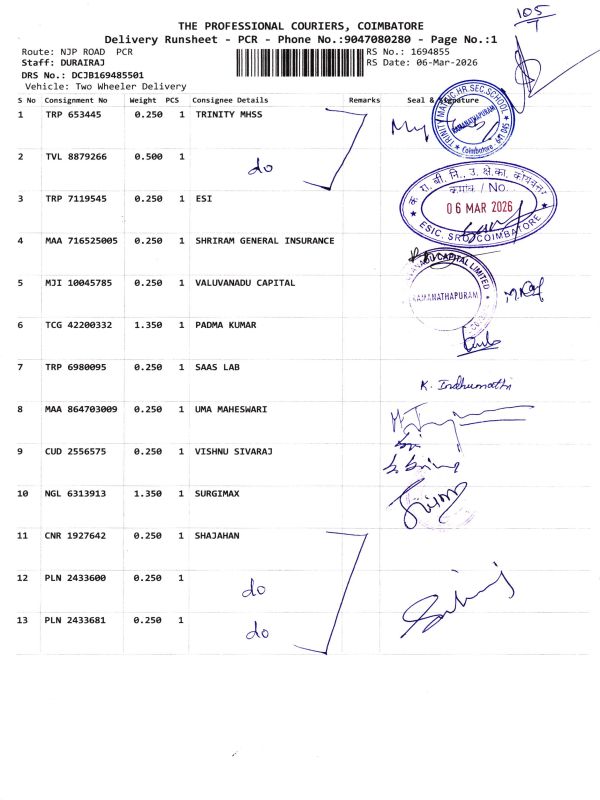 105
1
THE PROFESSIONAL COURIERS, COIMBATORE
Delivery Runsheet - PCR - Phone No.:9047080280 - Page No.:1
Route: NJP ROAD PCR RS No.: 1694855
Staff: DURAIRAJ RS Date: 06-Mar-2026
DRS No.: DCJB169485501
Vehicle: Two Wheeler Delivery
S No Consignment No Weight PCS Consignee Details Remarks Seal & Signature
1 TRP 653445 0.250 1 TRINITY MHSS
TRINITY MATRIC.HR.SEC.SCHOOL
RAMANATHAPURAM
Coimbatore - 641 045
2 TVL 8879266 0.500 1 do
3 TRP 7119545 0.250 1 ESI
क. रा. बी. नि., उ. क्षे. का. कोयम्बत्तूर
क्रमांक / No.
06 MAR 2026
ESIC, SRO, COIMBATORE
4 MAA 716525005 0.250 1 SHRIRAM GENERAL INSURANCE
5 MJI 10045785 0.250 1 VALUVANADU CAPITAL
CAPITAL LIMITED
RAMANATHAPURAM
6 TCG 42200332 1.350 1 PADMA KUMAR
7 TRP 6980095 0.250 1 SAAS LAB
K. Indhumathi
8 MAA 864703009 0.250 1 UMA MAHESWARI
9 CUD 2556575 0.250 1 VISHNU SIVARAJ
10 NGL 6313913 1.350 1 SURGIMAX
11 CNR 1927642 0.250 1 SHAJAHAN
12 PLN 2433600 0.250 1 do
13 PLN 2433681 0.250 1 do